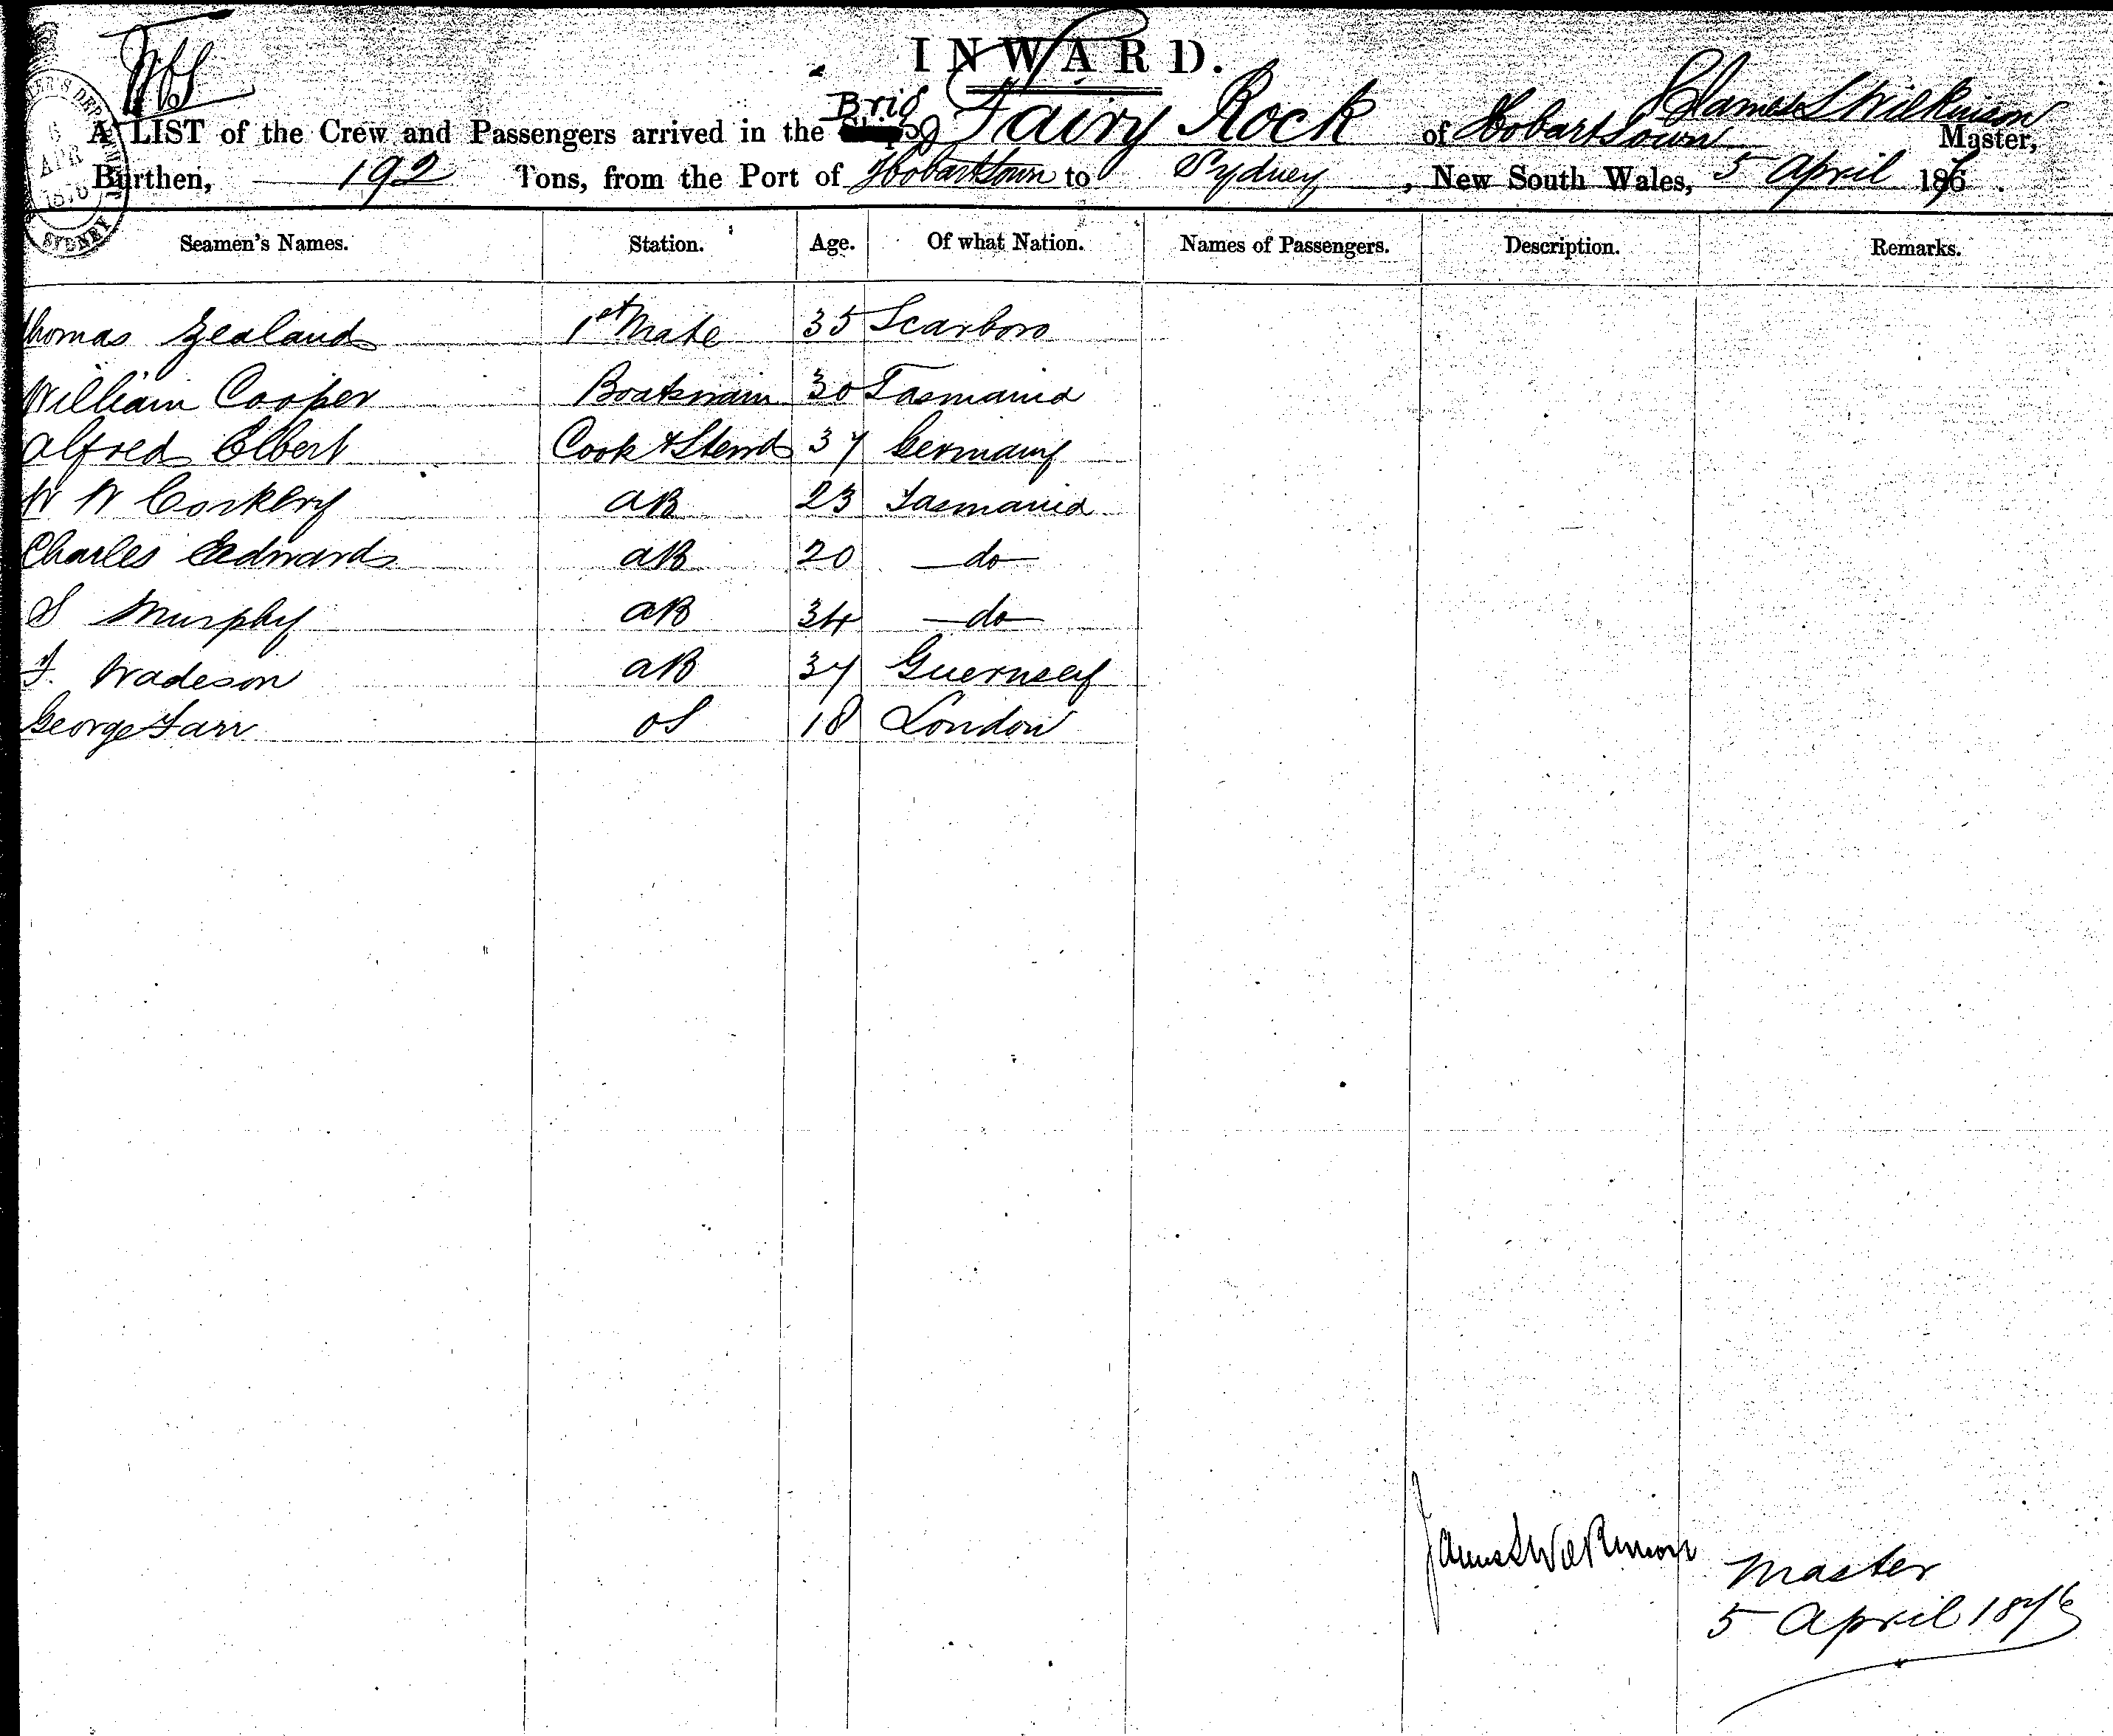 INWARD.
Brig
James S Wilkinson
A LIST of the Crew and Passengers arrived in the Fairy Rock of Hobart Town Master,
Burthen, 192 Tons, from the Port of Hobart town to Sydney, New South Wales, 5 April 187
APR
1876
SYDNEY
Seamen's Names. Station. Age. Of what Nation. Names of Passengers. Description. Remarks.
Thomas Zealand 1st Mate 35 Scarboro
William Cooper Boatswain 30 Tasmania
Alfred Elbert Cook & Stewd 37 Germany
W W Corkery AB 23 Tasmania
Charles Edwards AB 20 do
S Murphy AB 34 do
F. Wadeson AB 37 Guernsey
George Farr OS 18 London
James S Wilkinson
Master
5 April 1876